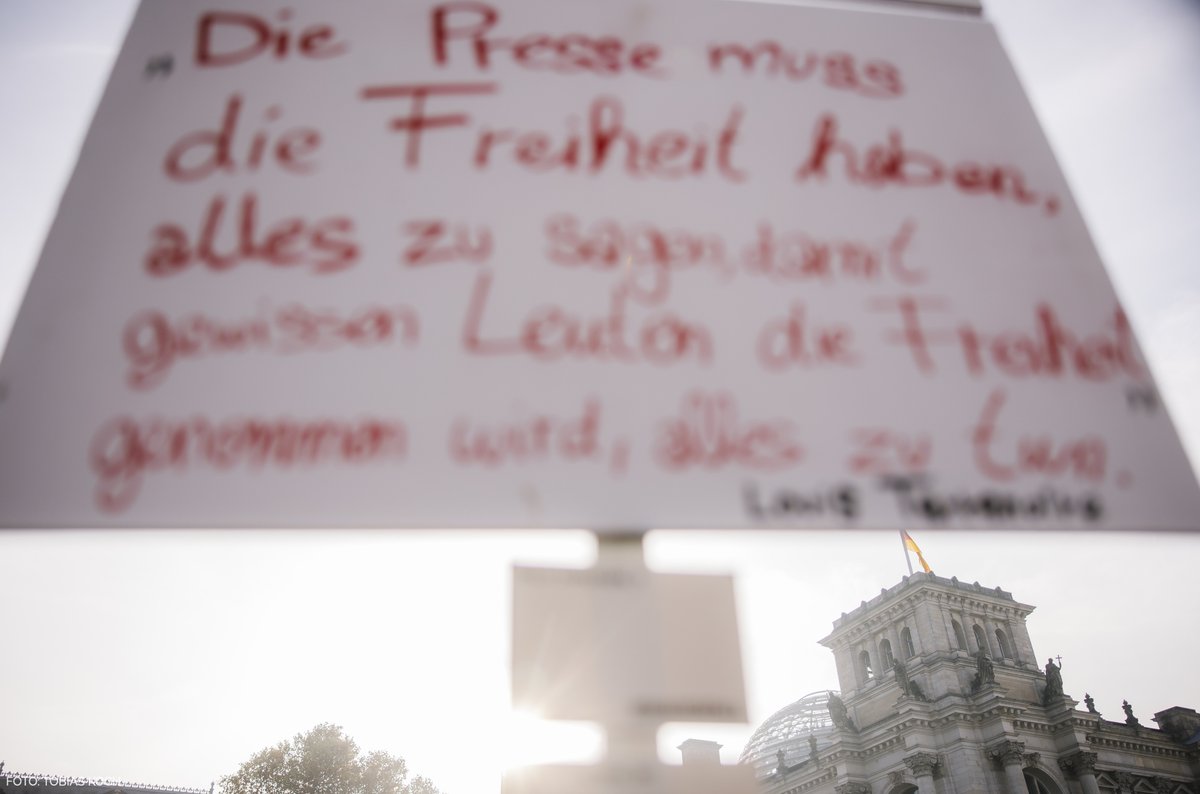 „Die Presse muss
die Freiheit haben,
alles zu sagen, damit
gewissen Leuten die Freiheit
genommen wird, alles zu tun.“
Louis Terrenoire
FOTO: TOBIAS KOCH